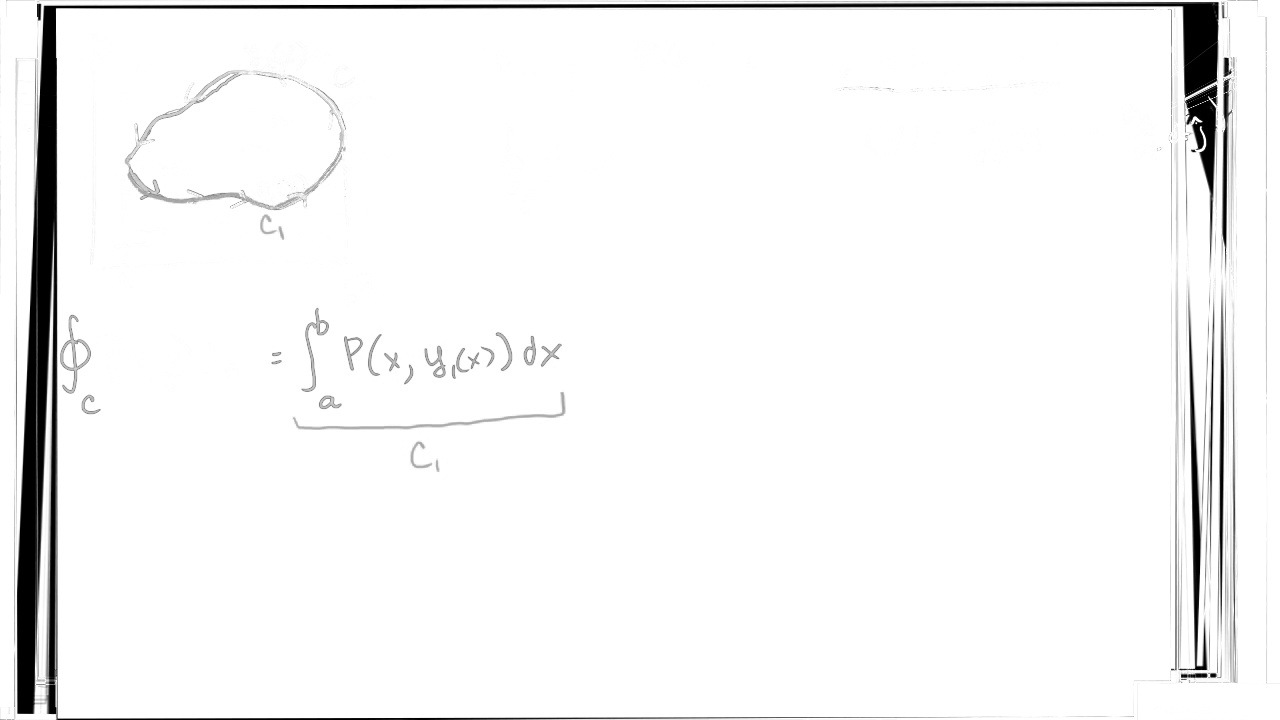 C₁
∮_C = ∫_a^b P(x, y₁(x)) dx
C₁
ĵ